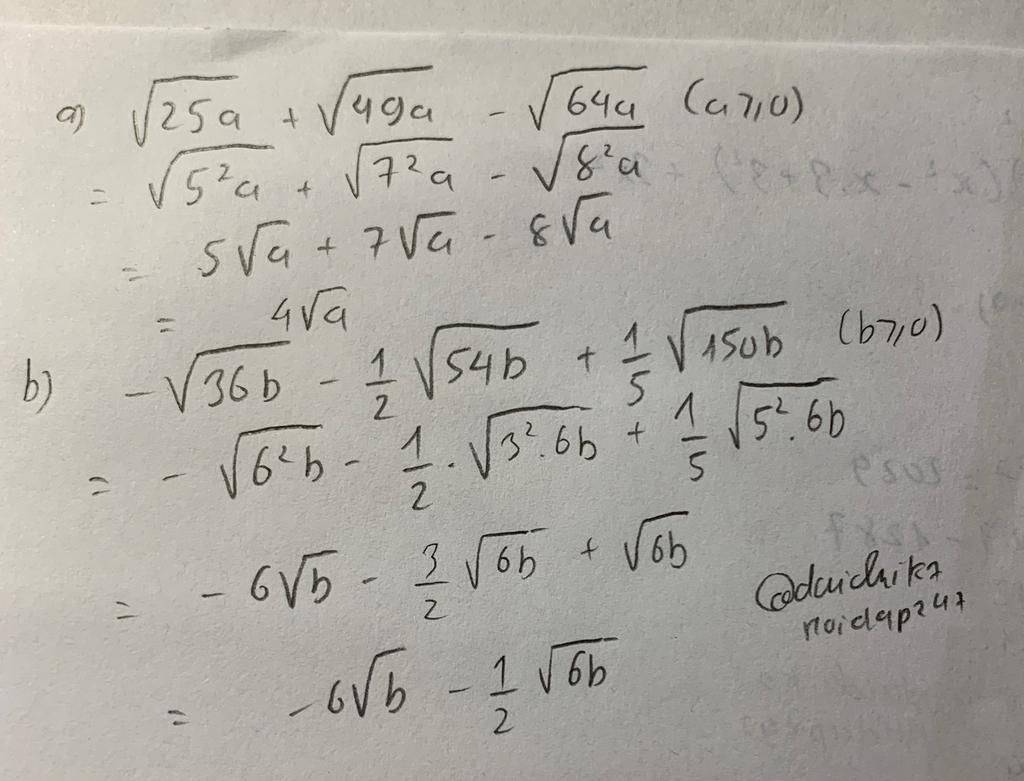 a) √25a + √49a - √64a (a≥0)
= √5²a + √7²a - √8²a
= 5√a + 7√a - 8√a
= 4√a
b) -√36b - 1/2 √54b + 1/5 √150b (b≥0)
= - √6²b - 1/2 . √3².6b + 1/5 √5².6b
= - 6√b - 3/2 √6b + √6b
@daichik7
noidap247
= -6√b - 1/2 √6b